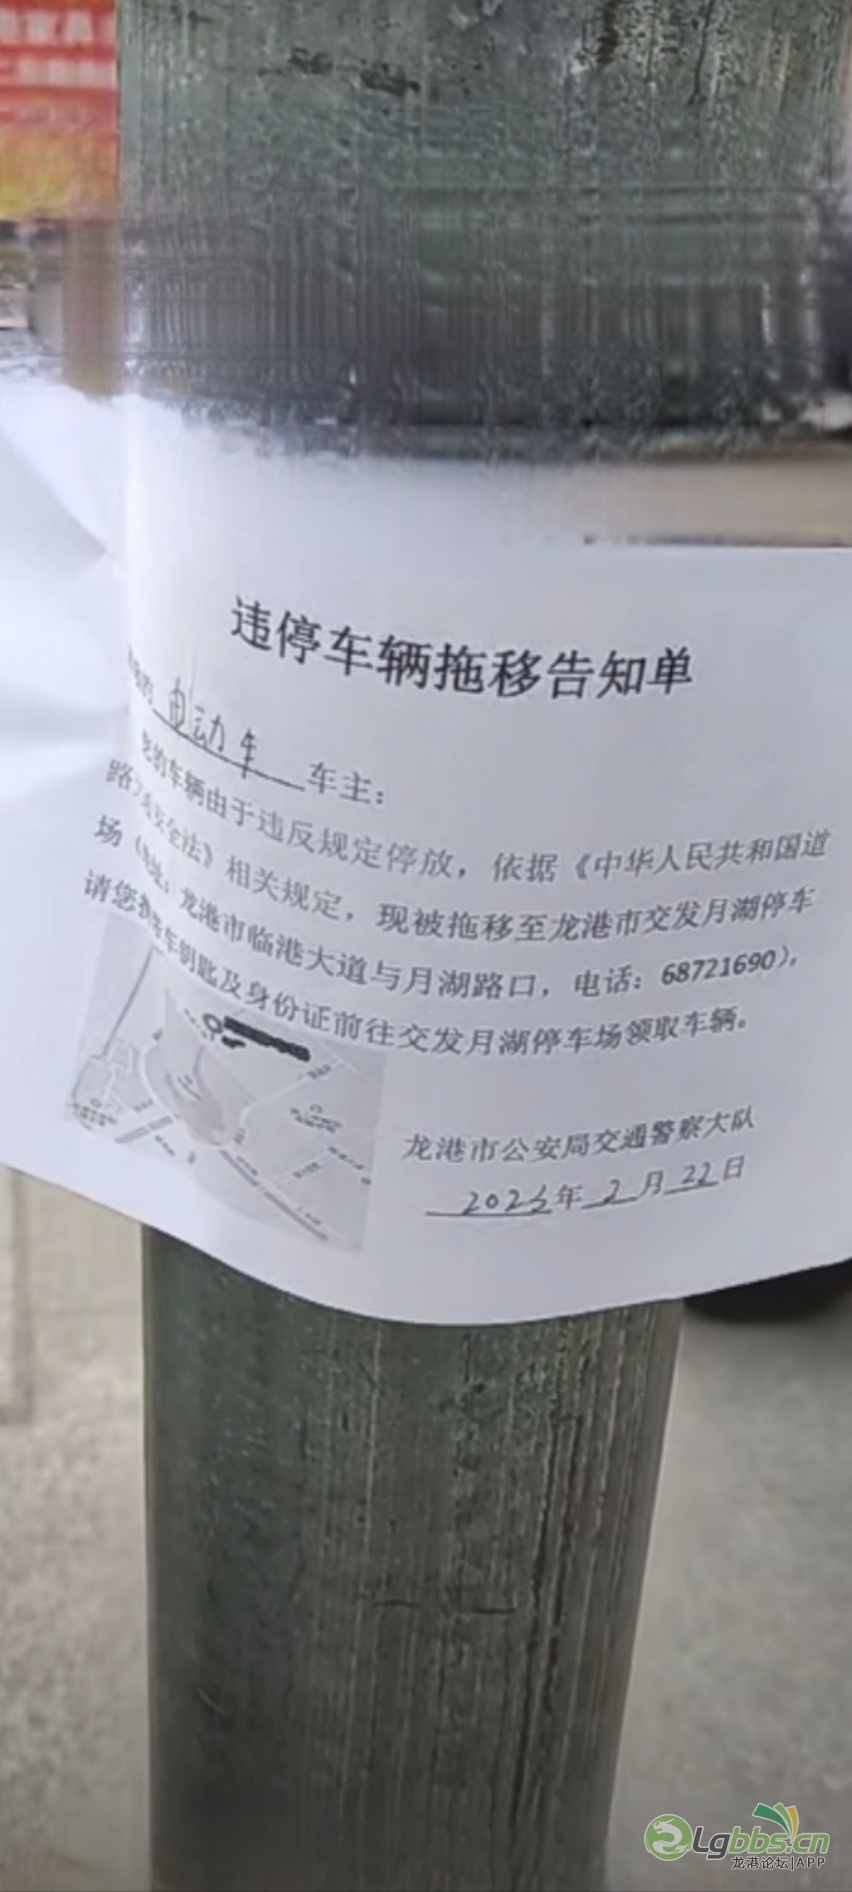 违停车辆拖移告知单
电动车 车主：
您的车辆由于违反规定停放，依据《中华人民共和国道
路交通安全法》相关规定，现被拖移至龙港市交发月湖停车
场（地址：龙港市临港大道与月湖路口，电话：68721690），
请您携带车钥匙及身份证前往交发月湖停车场领取车辆。
龙港市公安局交通警察大队
年2月22日
Lgbbs.cn
龙港论坛|APP